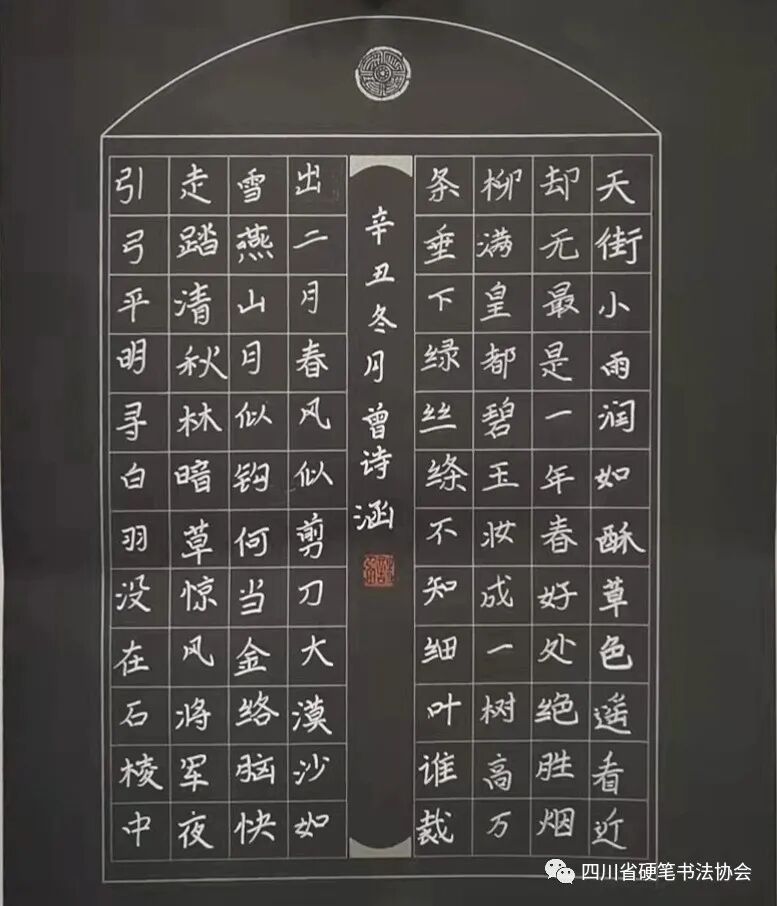 天街小雨润如酥草色遥看近
却无最是一年春好处绝胜烟
柳满皇都碧玉妆成一树高万
条垂下绿丝绦不知细叶谁裁
辛丑冬月曾诗涵
出二月春风似剪刀大漠沙如
雪燕山月似钩何当金络脑快
走踏清秋林暗草惊风将军夜
引弓平明寻白羽没在石棱中
四川省硬笔书法协会